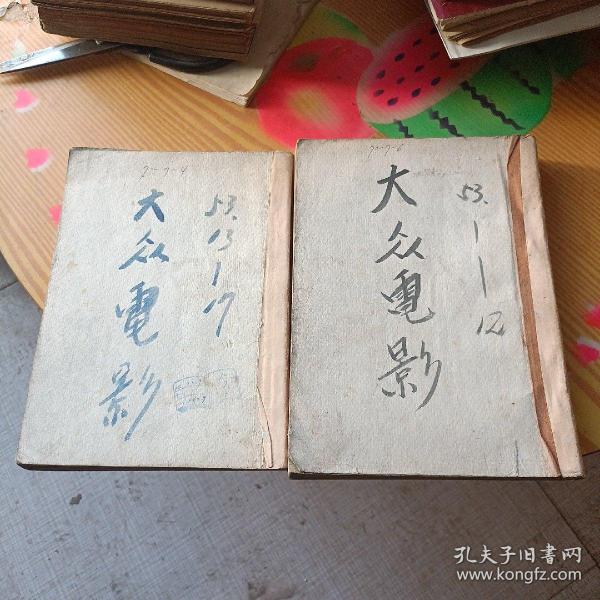 7-7-4
大众電影
53.
13
—
17
7-7-6
大众電影
53.
1
—
12
孔夫子旧书网
www.kongfz.com